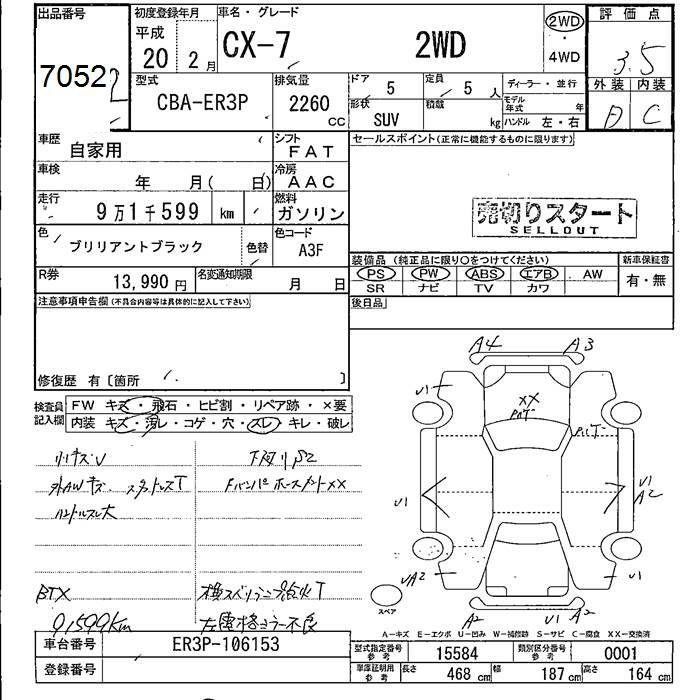 出品番号 初度登録年月 車名・グレード 評価点
7052
平成
20 2月
CX-7 2WD
2WD
・
4WD
3.5
型式 CBA-ER3P
排気量 2260 CC
ドア 5
定員 5 人
ディーラー・並行
外装 内装
D C
形状 SUV
積載 kg
モデル年式 年
ハンドル 左・右
車歴 自家用
シフト FAT
セールスポイント(正常に機能するものに限ります)
車検 年 月( 日)
冷房 AAC
走行 9万1千599 km
燃料 ガソリン
売切りスタート
SELLOUT
色 ブリリアントブラック
色替
色コード A3F
装備品(純正品に限り○をつけてください) 新車保証書
PS PW ABS エアB AW
SR ナビ TV カワ
有・無
R券 13,990円
名変通知期限 月 日
後日品
注意事項申告欄(不具合内容等は具体的に記入して下さい)
修復歴 有〔箇所 〕
検査員記入欄
FW キズ・飛石・ヒビ割・リペア跡・×要
内装 キズ・汚レ・コゲ・穴・スレ・キレ・破レ
A4 A3
U1
XX
小キズU
外AWキズ
ハンドルスレ大
FバンパホースメントXX
U1
U1
A2
UA2
U1
A2
U1 A2
スペア
BTX
91,599km
A―キズ E―エクボ U―凹み W―補修跡 S―サビ C―腐食 XX―交換済
車台番号 ER3P-106153
登録番号
型式指定番号参考 15584
類別区分番号参考 0001
車庫証明用参考 長さ 468 cm 幅 187 cm 高さ 164 cm